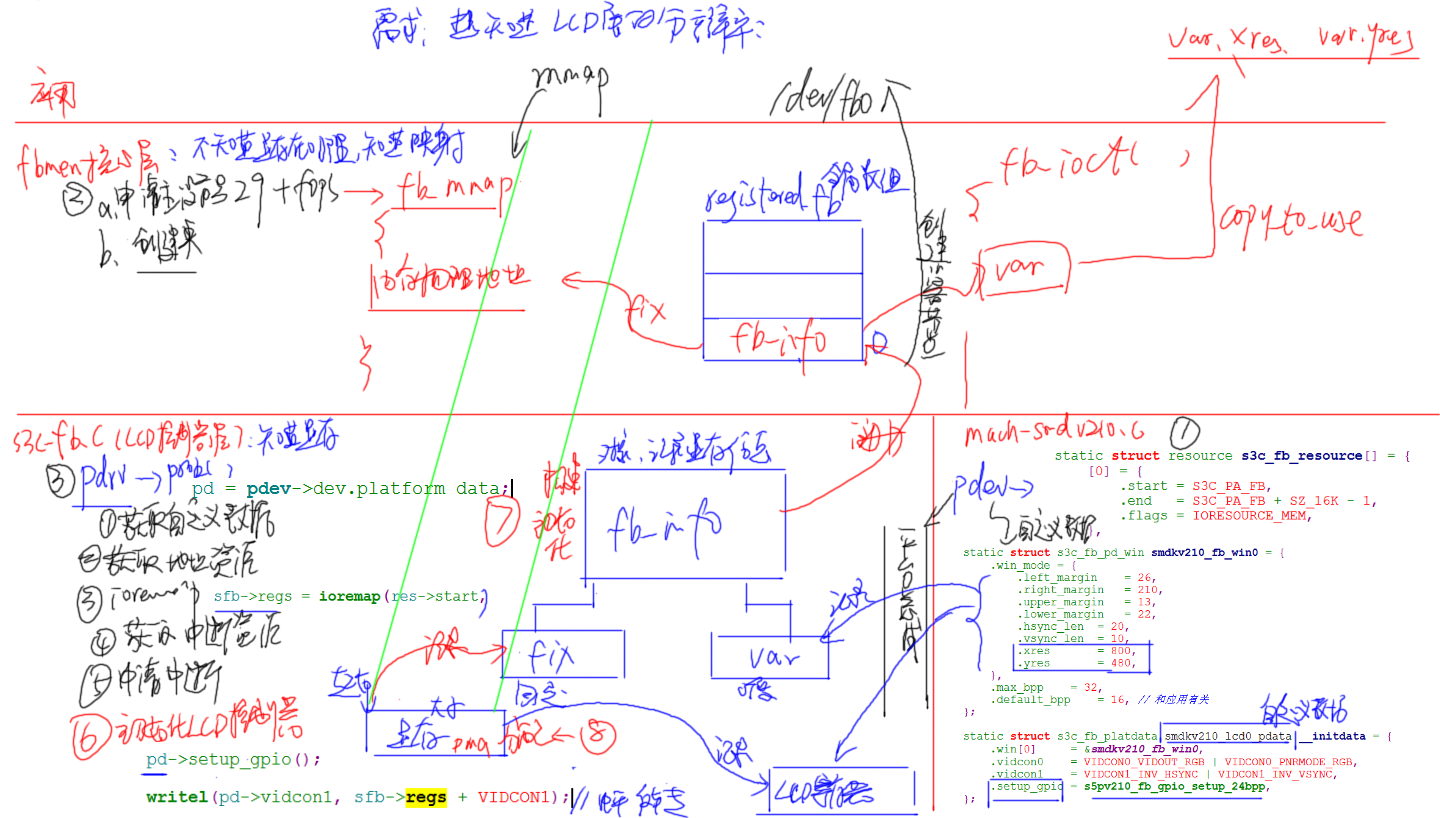 需求: 想知道 LCD屏的分辨率:
var.xres. var.yres
应用
mmap
/dev/fb0
fbmem核心层: 不知道显存在哪里,知道映射
② a.申请主设备号29+fops → fb_mmap
{
b. 创建类
registered_fb 全局数组
fb_ioctl
{
copy_to_use
创建设备节点
var
fix
fb_info 0
}
s3c-fb.c (LCD控制器层): 知道显存
③ pdrv → probe
pd = pdev->dev.platform_data;
①获取自定义数据
②获取地址资源
③ioremap
sfb->regs = ioremap(res->start,
④ 获取中断资源
⑤申请中断
⑥ 初始化LCD控制器
pd->setup_gpio();
writel(pd->vidcon1, sfb->regs + VIDCON1);//
⑦
fb_info
记录
fix
固定
var
大小
显存
⑧
记录
记录
LCD寄存器
mach-smdkv210.c ①
pdev→
自定义数据
static struct resource s3c_fb_resource[] = {
[0] = {
.start = S3C_PA_FB,
.end = S3C_PA_FB + SZ_16K - 1,
.flags = IORESOURCE_MEM,
},
static struct s3c_fb_pd_win smdkv210_fb_win0 = {
.win_mode = {
.left_margin = 26,
.right_margin = 210,
.upper_margin = 13,
.lower_margin = 22,
.hsync_len = 20,
.vsync_len = 10,
.xres = 800,
.yres = 480,
},
.max_bpp = 32,
.default_bpp = 16, // 和应用有关
};
自定义数据
static struct s3c_fb_platdata smdkv210_lcd0_pdata __initdata = {
.win[0] = &smdkv210_fb_win0,
.vidcon0 = VIDCON0_VIDOUT_RGB | VIDCON0_PNRMODE_RGB,
.vidcon1 = VIDCON1_INV_HSYNC | VIDCON1_INV_VSYNC,
.setup_gpio = s5pv210_fb_gpio_setup_24bpp,
};